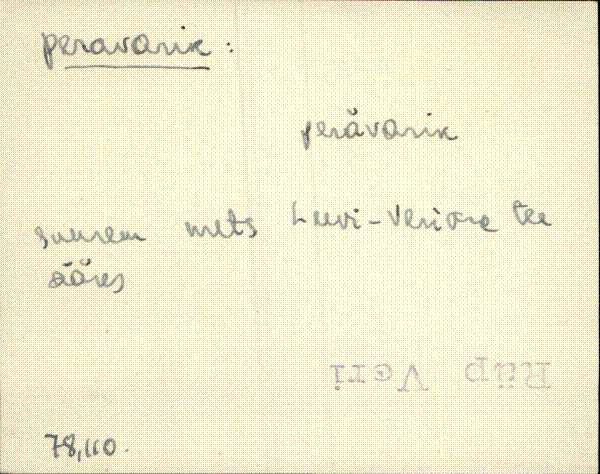 peravarik:
perävarik
suurem mets Leevi-Veriora tee
ääres
Räp Veri
78,110.